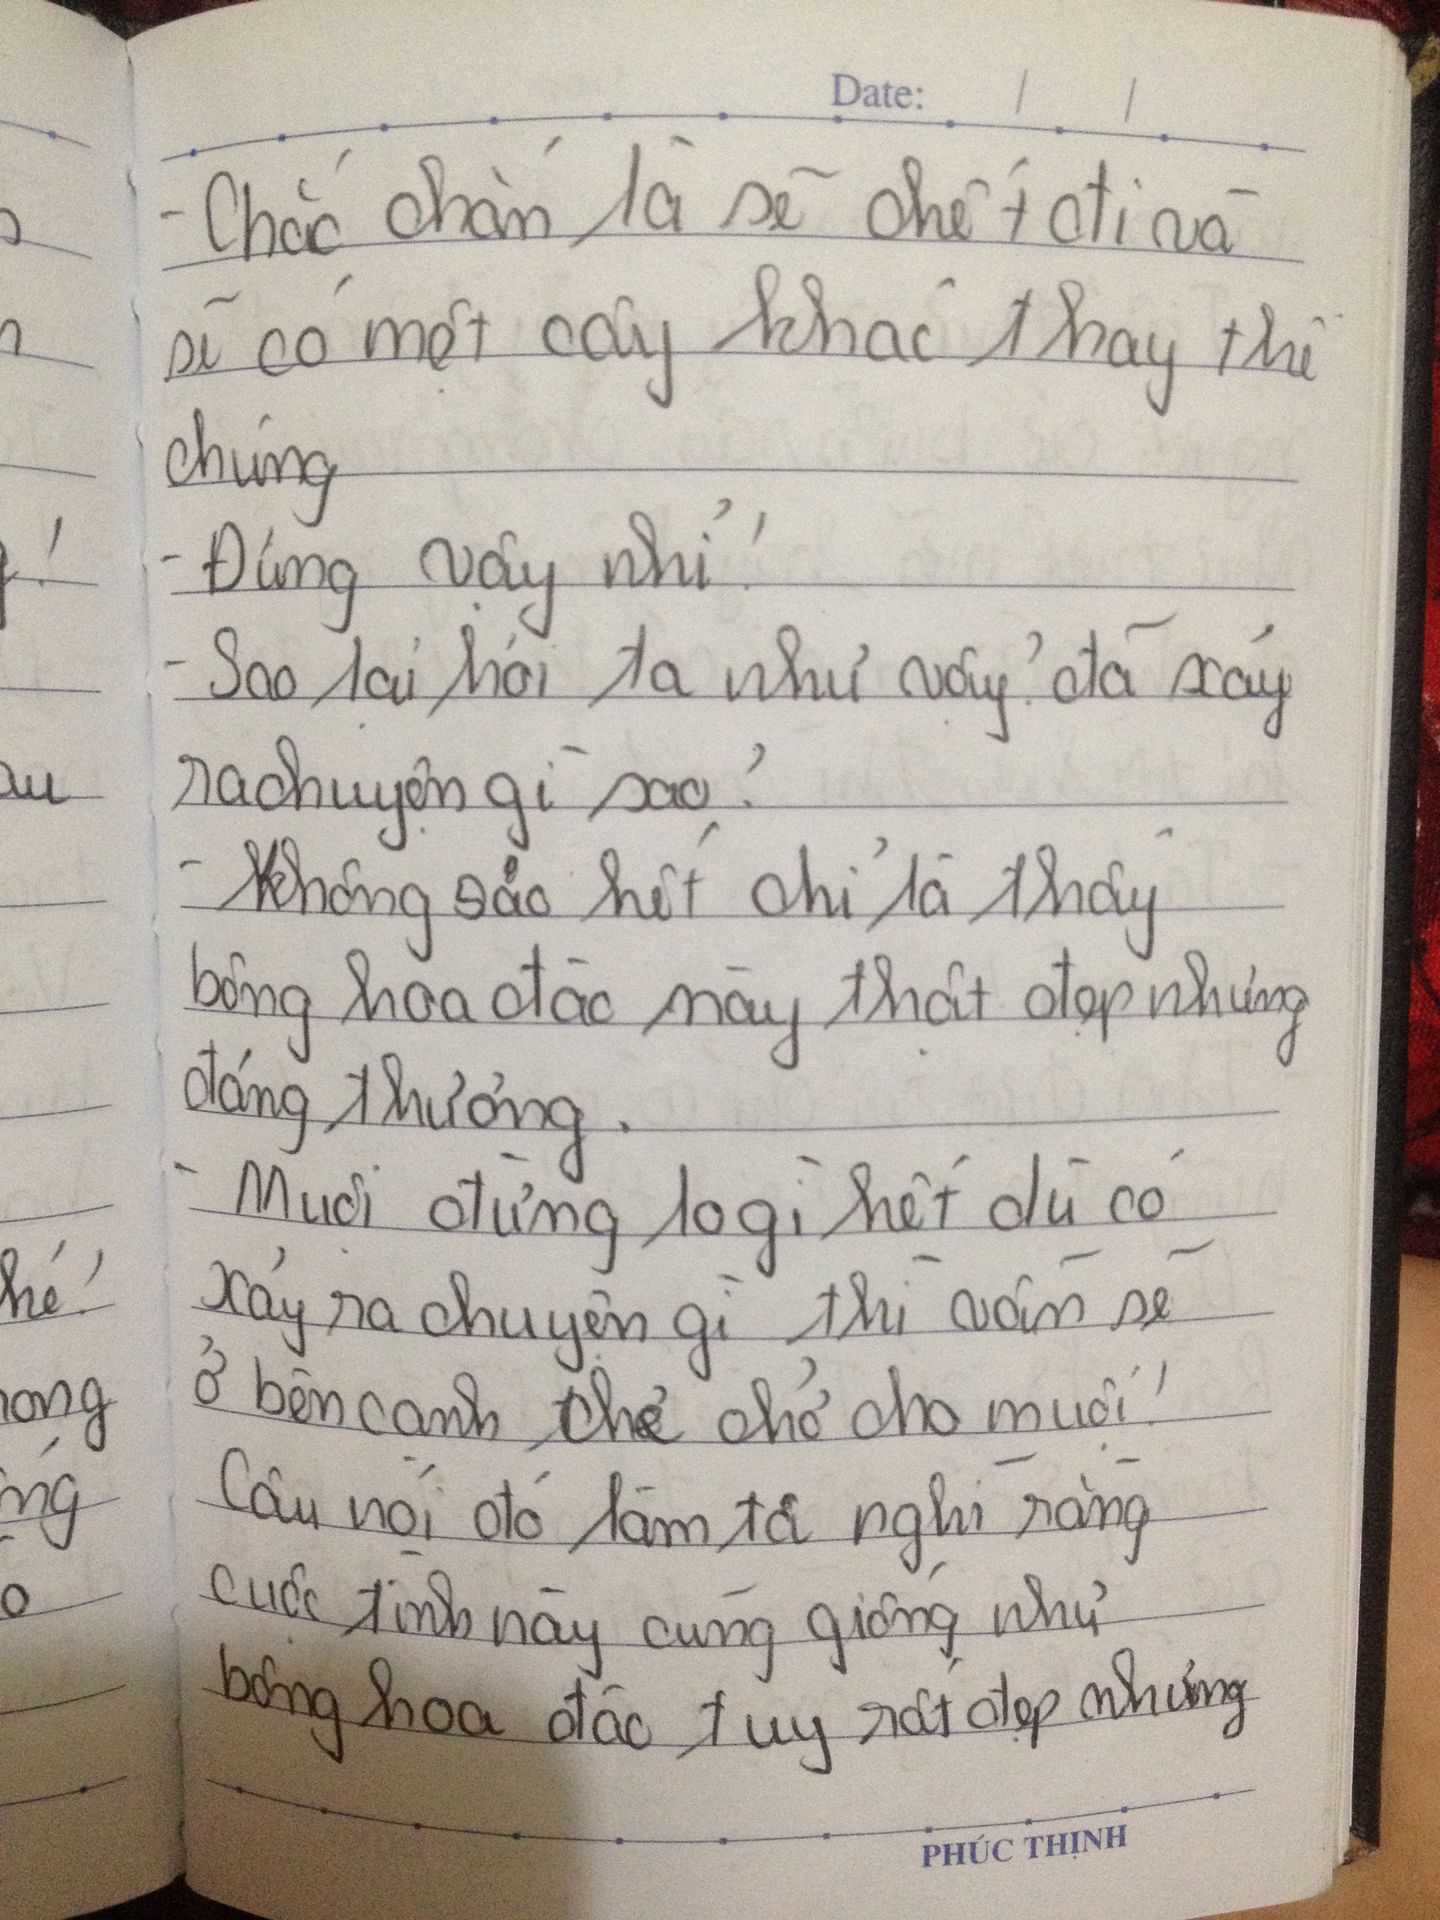 Date: / /
- Chắc chắn là sẽ chết đi và
sẽ có một cây khác thay thế
chúng
- Đúng vậy nhỉ!
- Sao lại hỏi ta như vậy? đã xảy
ra chuyện gì sao?
- Không sao hết chỉ là thấy
bông hoa đào này thật đẹp nhưng
đáng thương.
- Muội đừng lo gì hết dù có
xảy ra chuyện gì thì vẫn sẽ
ở bên cạnh che chở cho muội!
Câu nói đó làm ta nghĩ rằng
cuộc tình này cũng giống như
bông hoa đào tuy rất đẹp nhưng
PHÚC THỊNH
g!
au
hé!
hong
o